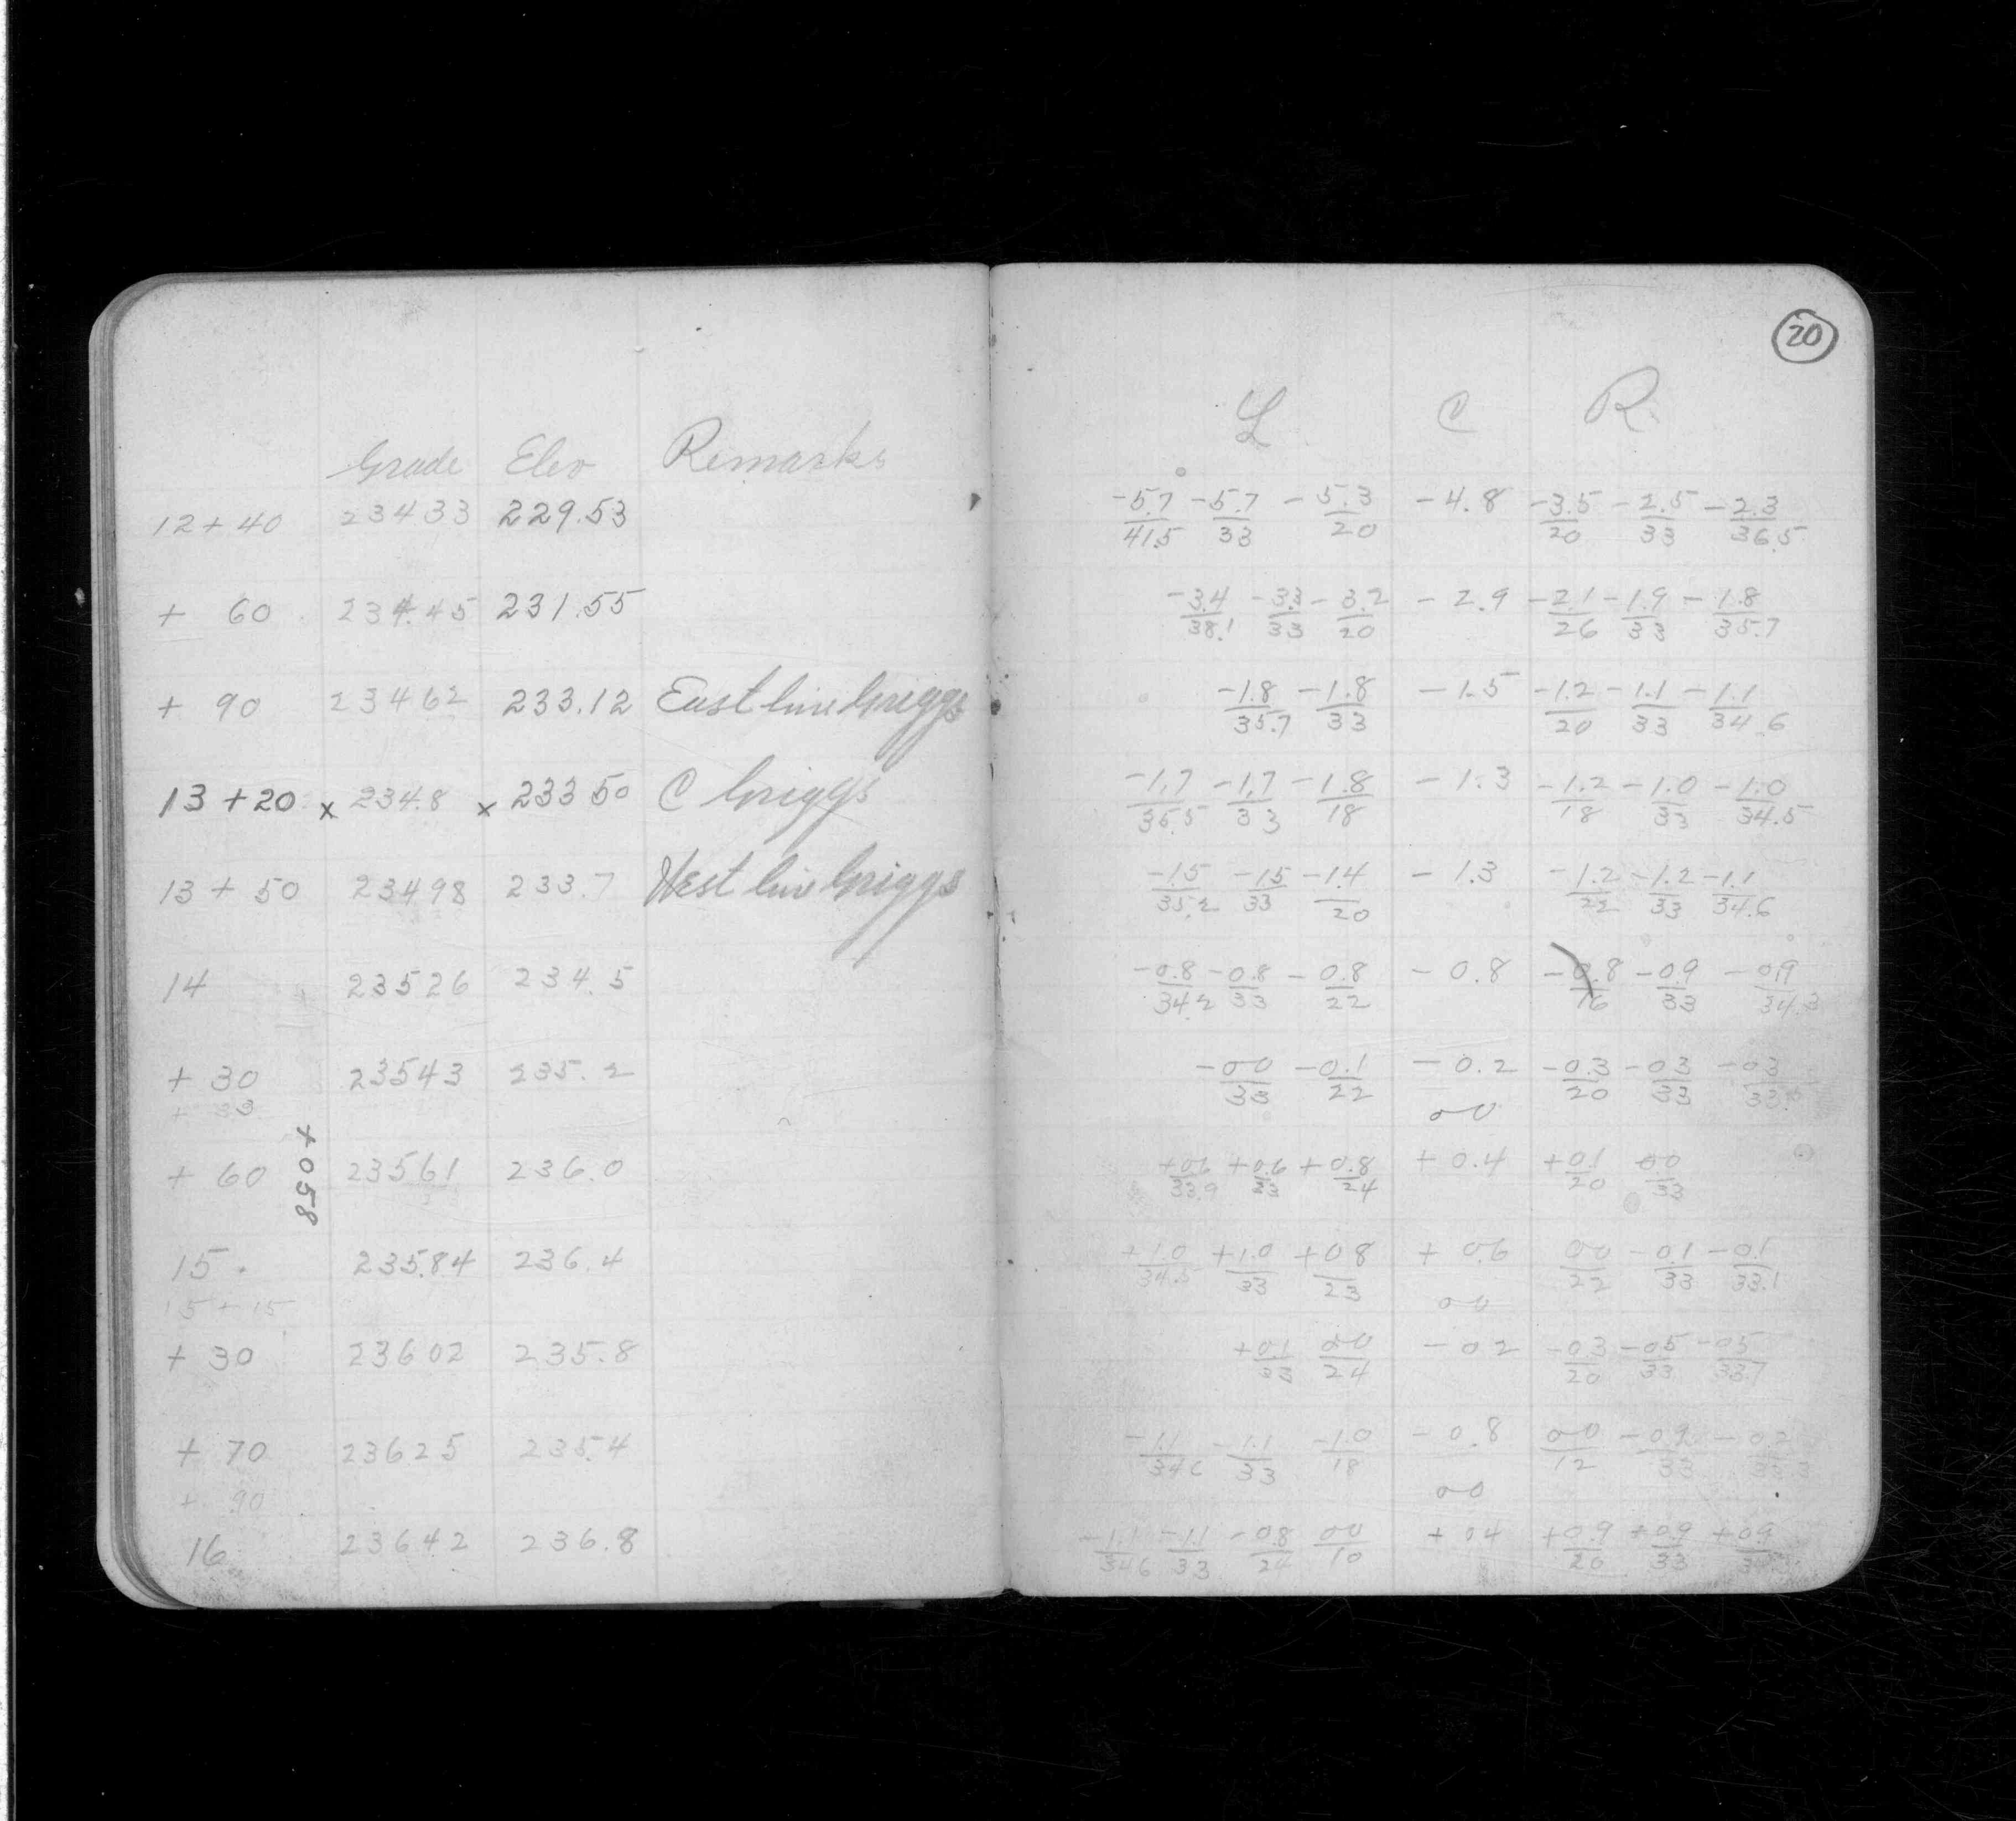 20
Grade Elev Remarks
12+40 23433 229.53
+ 60 234.45 231.55
+ 90 23462 233.12 East line Griggs
13+20 x 234.8 x 233 50 C Griggs
13+50 23498 233.7 West line Griggs
14 23526 234.5
+ 30 23543 235.2
+ 33
+ 60 23561 236.0
+058
15 235.84 236.4
15+15
+ 30 23602 235.8
+ 70 23625 235.4
+ 90
16 23642 236.8
L C R
-5.7/41.5 -5.7/33 -5.3/20 -4.8 -3.5/20 -2.5/33 -2.3/36.5
-3.4/38.1 -3.3/33 -3.2/20 -2.9 -2.1/26 -1.9/33 -1.8/35.7
-1.8/35.7 -1.8/33 -1.5 -1.2/20 -1.1/33 -1.1/34.6
-1.7/35.5 -1.7/33 -1.8/18 -1.3 -1.2/18 -1.0/33 -1.0/34.5
-1.5/35.2 -1.5/33 -1.4/20 -1.3 -1.2/22 -1.2/33 -1.1/34.6
-0.8/34.2 -0.8/33 -0.8/22 -0.8 -0.8/16 -0.9/33 -0.9/34.3
-00/33 -0.1/22 -0.2 -0.3/20 -03/33 -03
00
+06/33.9 +0.6/33 +0.8/24 +0.4 +01/20 00/33
+1.0/34.5 +1.0/33 +08/23 +06 00/22 -01/33 -0.1/33.1
00
+01/33 00/24 -02 -03/20 -05/33 -05/33.7
-1.1/346 -1.1/33 -1.0/18 -0.8 00/12 -09/33
00
-1.1/346 -1.1/33 -08/24 00/10 +04 +0.9/20 +09/33 +09